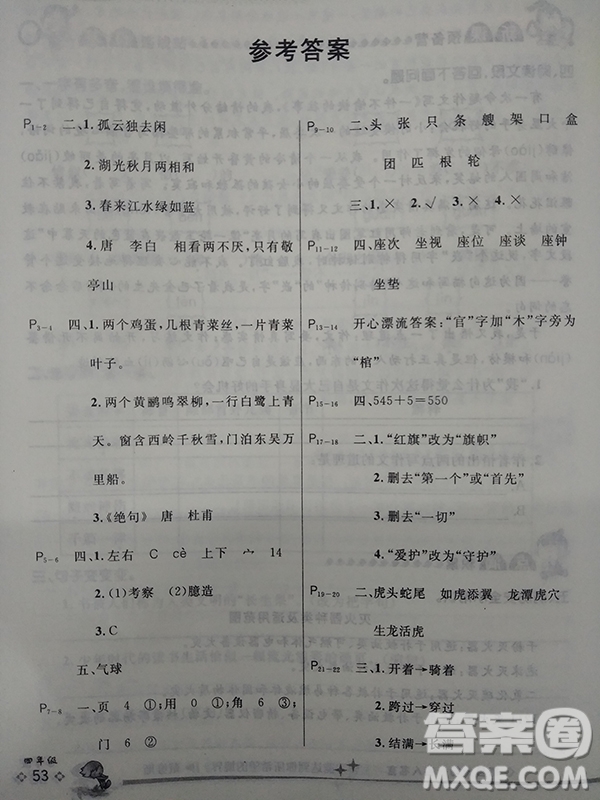 参考答案
P1-2 二、1. 孤云独去闲
2. 湖光秋月两相和
3. 春来江水绿如蓝
4. 唐 李白 相看两不厌,只有敬
亭山
P3-4 四、1. 两个鸡蛋,几根青菜丝,一片青菜
叶子。
2. 两个黄鹂鸣翠柳,一行白鹭上青
天。窗含西岭千秋雪,门泊东吴万
里船。
3.《绝句》 唐 杜甫
P5-6 四、1. 左右 C cè 上下 宀 14
2. (1)考察 (2)臆造
3. C
五、气球
P7-8 一、页 4 ①;用 0 ①;角 6 ③;
门 6 ②
P9-10 二、头 张 只 条 艘 架 口 盒
团 匹 根 轮
三、1. × 2. √ 3. × 4. ×
P11-12 四、座次 坐视 座位 座谈 座钟
坐垫
P13-14 开心漂流答案:“官”字加“木”字旁为
“棺”
P15-16 四、545+5=550
P17-18 二、1.“红旗”改为“旗帜”
2. 删去“第一个”或“首先”
3. 删去“一切”
4.“爱护”改为“守护”
P19-20 二、虎头蛇尾 如虎添翼 龙潭虎穴
生龙活虎
P21-22 三、1. 开着→骑着
2. 跨过→穿过
3. 结满→长满
四年级
53
答案圈
MXQE.COM